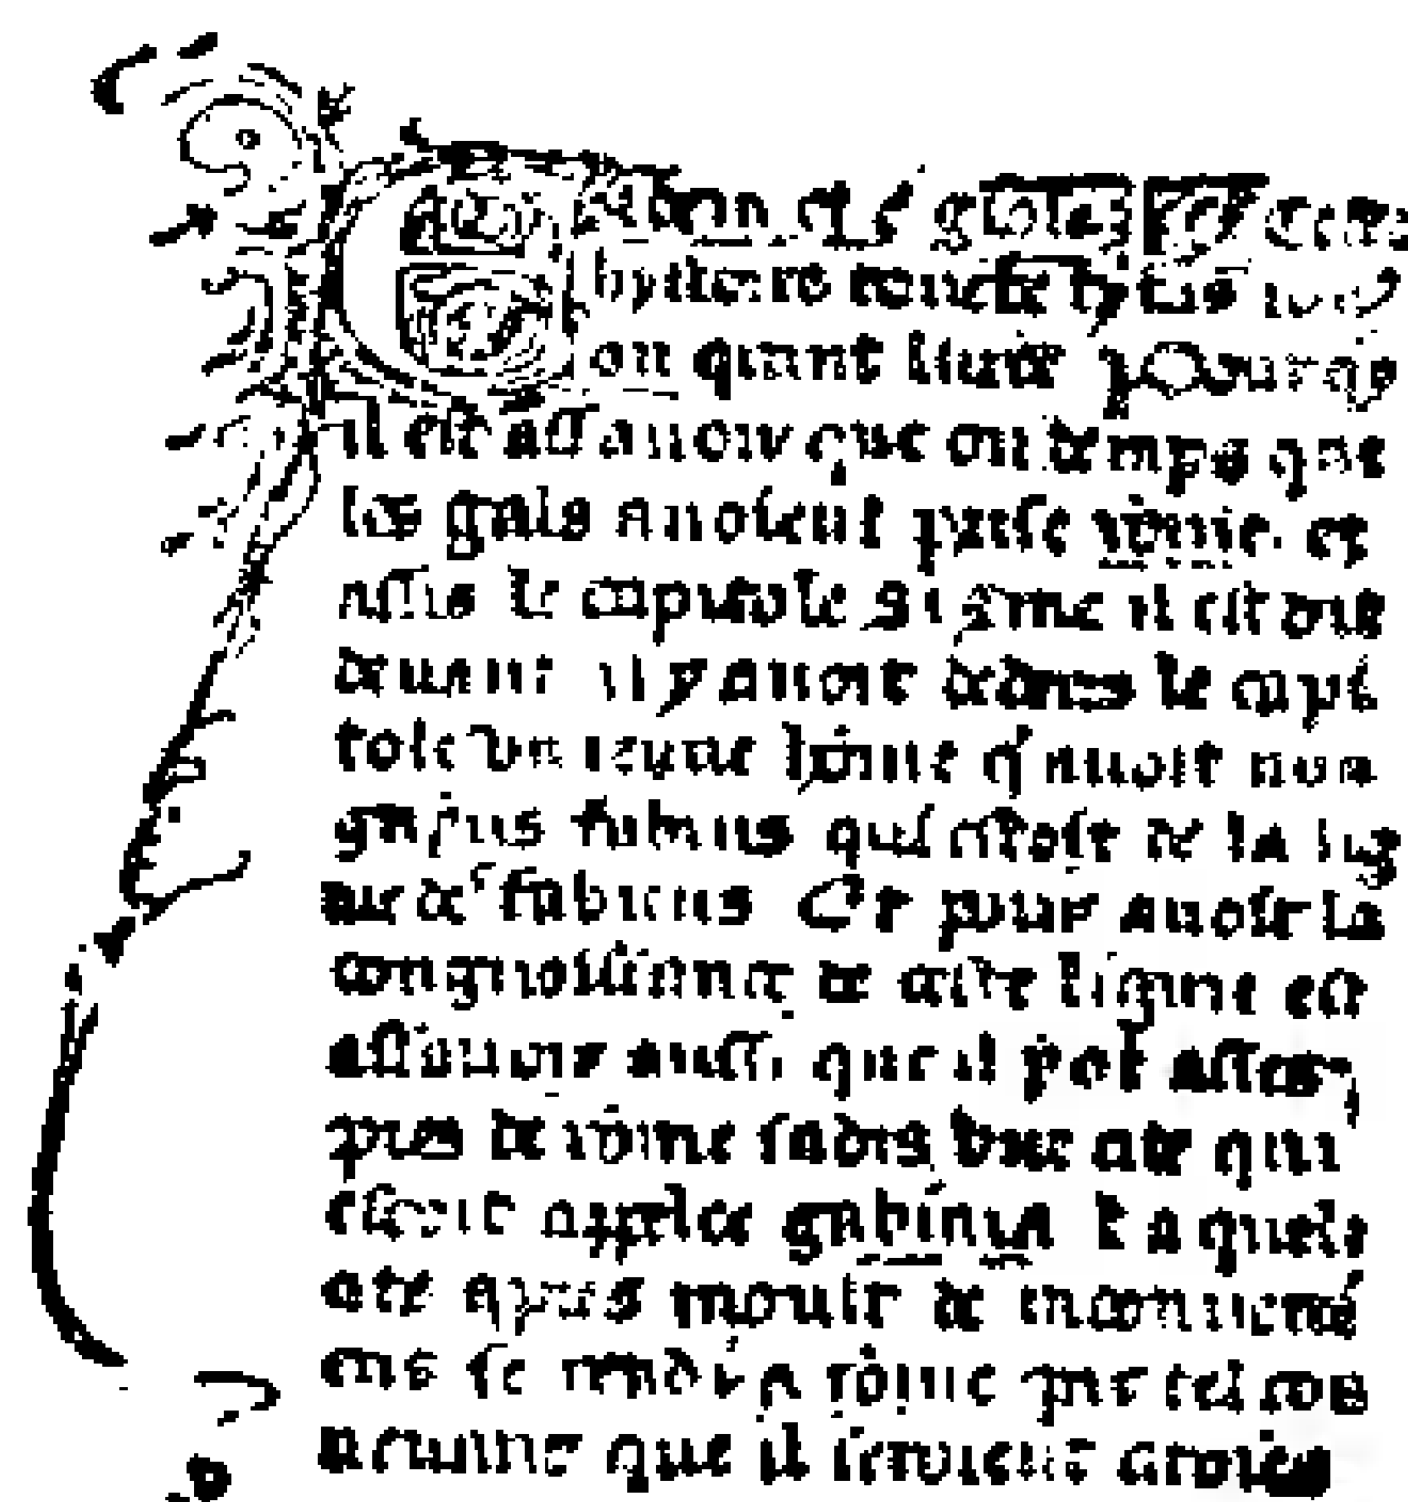 hystoire touche tytus
ou quart liure
il est assauoir que ou temps que
les gals auoient prise rōme. et
assis le capitole si cōme il est dit
deuant il y auoit dedens le capi
tole vn ieune hōme q̄ auoit nom
gayus fabius qui estoit de la lig
nie de fabiens Et pour auoir la
congnoissance de ceste ligne est
assauoir aussi que il y ot asses
pres de rōme iadis vne cite qui
estoit appelee gabinia laquele
cite apres moult de inconueni
ens se rendi a rōme par tel con
uenant que il seroient citoiens